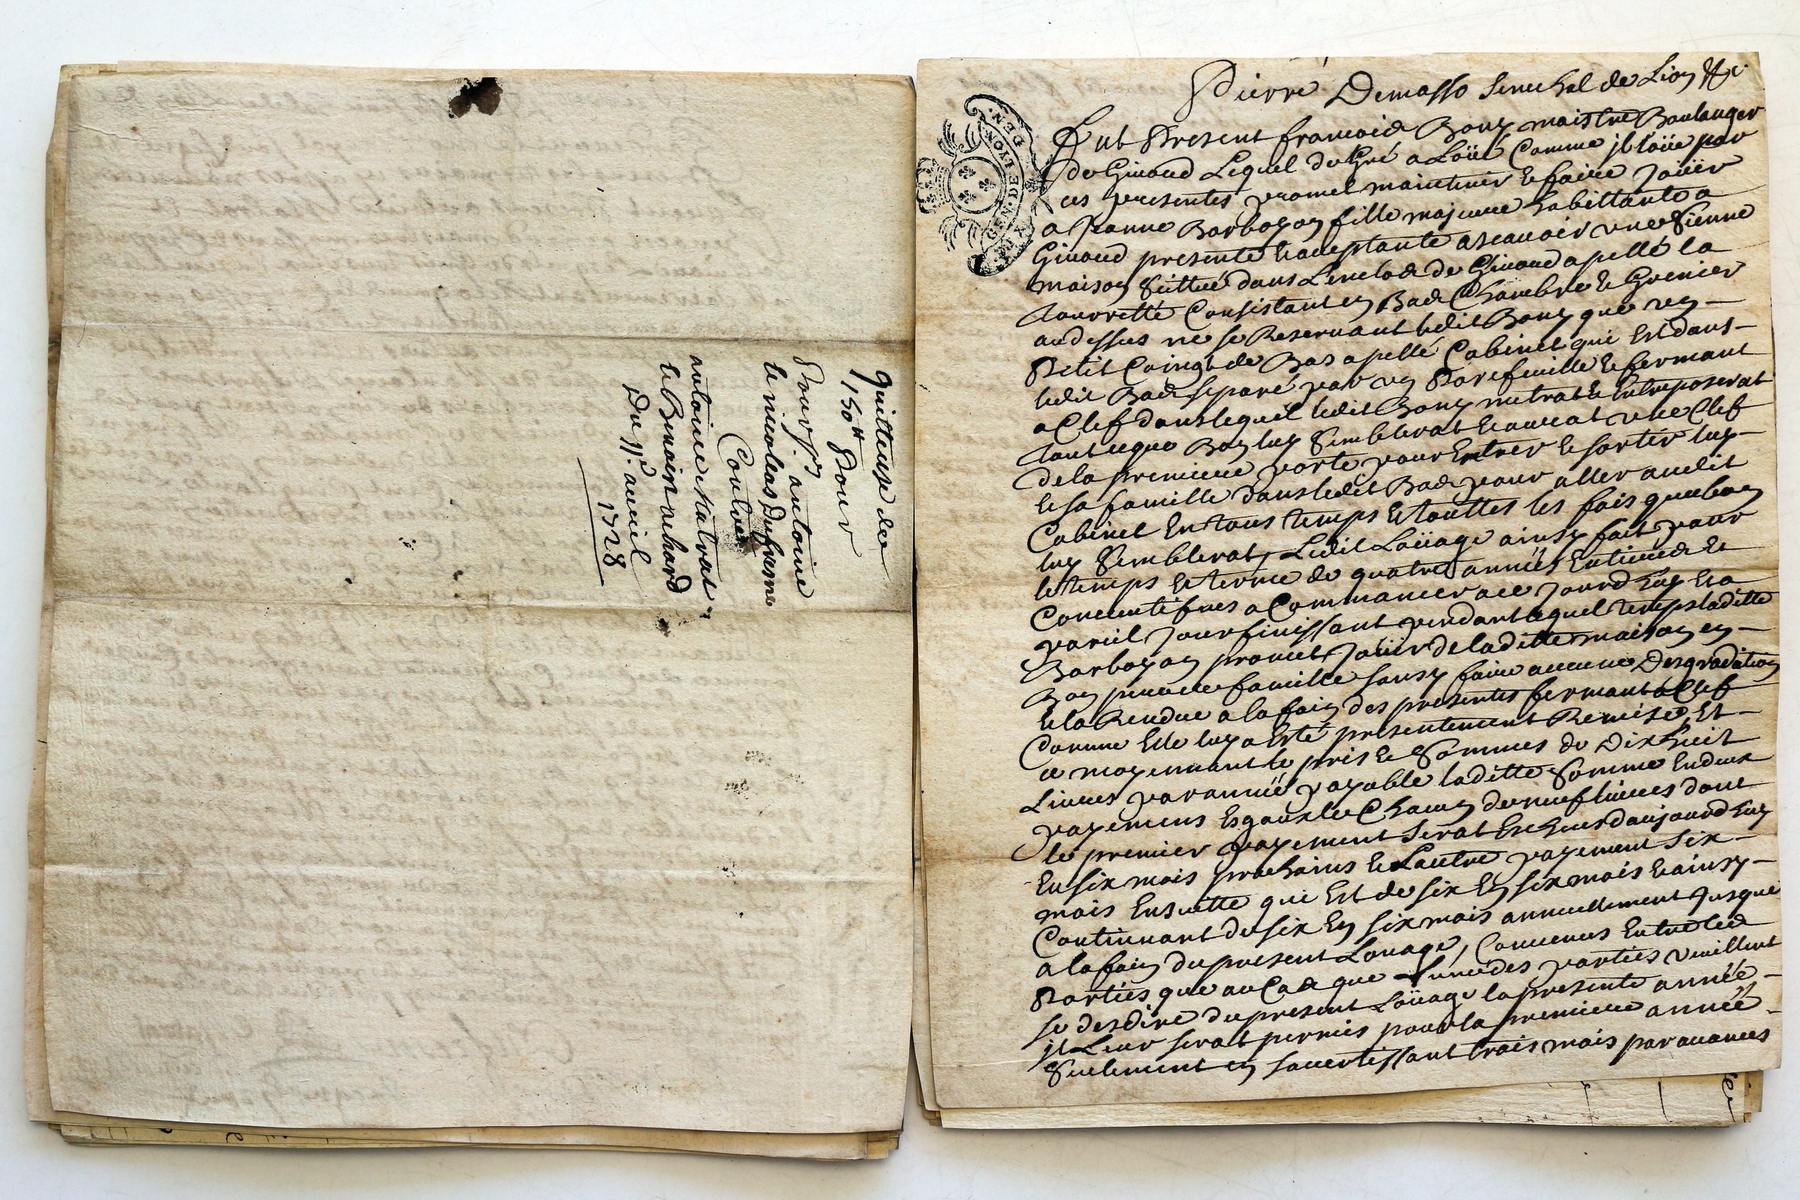 quittense de
150ʰ pour
Sauv.ⁿ antoine
le nicolas Dufresne
antoine
le Benoist achard
Du 11.ᵉ avril
1728
GEN. DE LYON.
Pierre Demasso Senechal de Lion &c.
Fut Present francois Bouy maistre Boulanger
de Givaud Lequel de Gré a Loüé Comme jl loüe par
ces presentes promet maintenir & faire Joüir
a Jeanne Barboyon fille majeure habittante a
Givaud presente & acceptante ascauoir une Sienne
maison Scittué dans Lenclos de Givaud apellé la
Tourrette Consistant en Bas Chambre & Grenier
au dessus ne se Reservant ledit Bouy que un
Petit Coingt de Bas apellé Cabinet qui Est dans
ledit Bas separé par un Parefeuille & fermant
a Clef dans lequel ledit Bouy mettrat & Entreposerat
tout ce que Bon luy Semblerat & aurat une Clef
de la premiere porte pour Entrer & sortir luy
& sa famille dans ledit Bas pour aller audit
Cabinet En tous temps & touttes les fois que bon
luy Semblerat, Ledit Loüage ainsy fait pour
le temps & terme de quatre années Entieres &
Concecutifves a Commancer a ce Jourdhuy & a
pareil Jour finissant pendant lequel temps laditte
Barboyon promet Joüir de laditte maison en
Bon pere de famille sans y faire aucune Desgradation
& la Rendre a la fain des presentes fermant a Clef
Comme Elle luy a Esté presentement Remise, Et
ce moyennant le pris & Sommes de Dix huit
Livres par année payable laditte Somme En deux
payemens Esgaux de Chacun de neuf livres dont
le premier payement serat Escheus daujourdhuy
En six mois prochains & Lautre payement six
mois Ensuitte qui Est de six En six mois & ainsy
Continuant de six En six mois annuellement Jusque
a la fain du present Louage, Convenus Entre les
Parties que au Cas que Lune des parties veuillent
se desdire du present Loüage la presente année
jl Leur serat permis pour la premiere année
Seulement en savertissant trois mois par avances